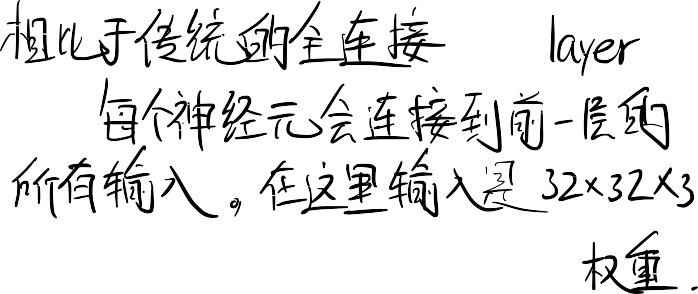 相比于传统的全连接 layer
每个神经元会连接到前一层的
所有输入。在这里输入是 32×32×3
权重.